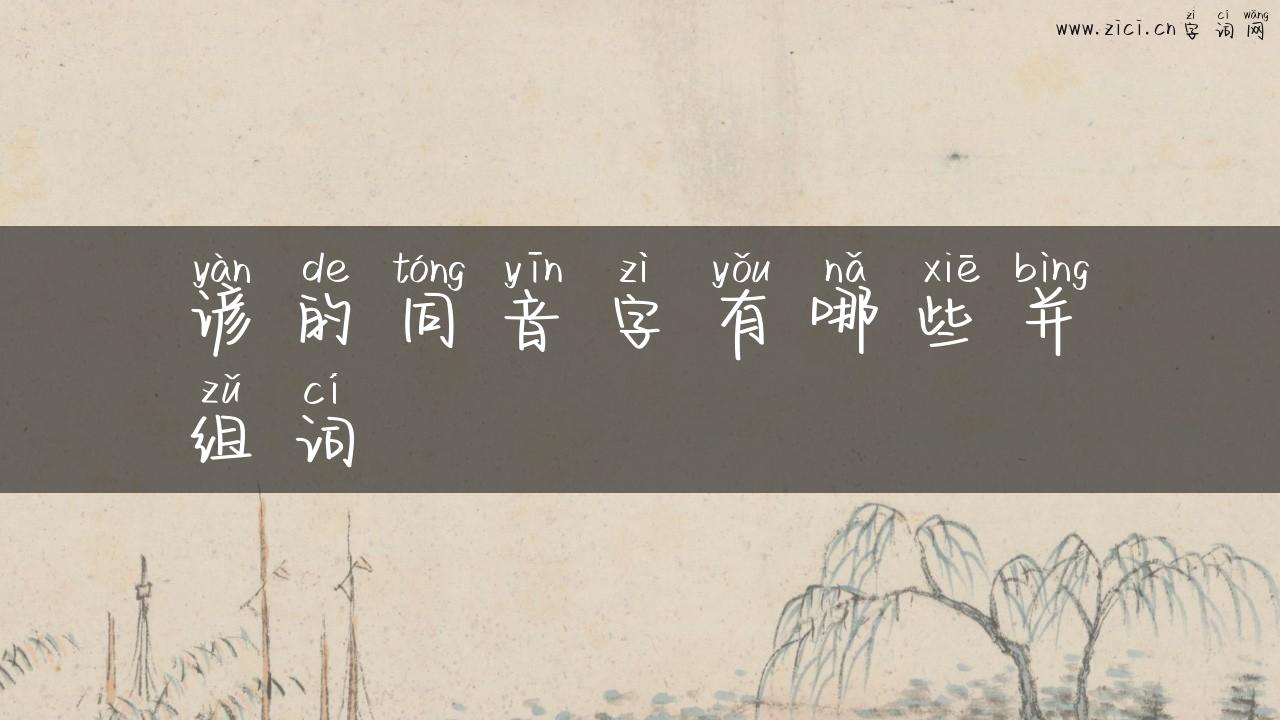 zì cí wǎng
www.zici.cn 字 词 网
yàn de tóng yīn zì yǒu nǎ xiē bìng
谚 的 同 音 字 有 哪 些 并
zǔ cí
组 词